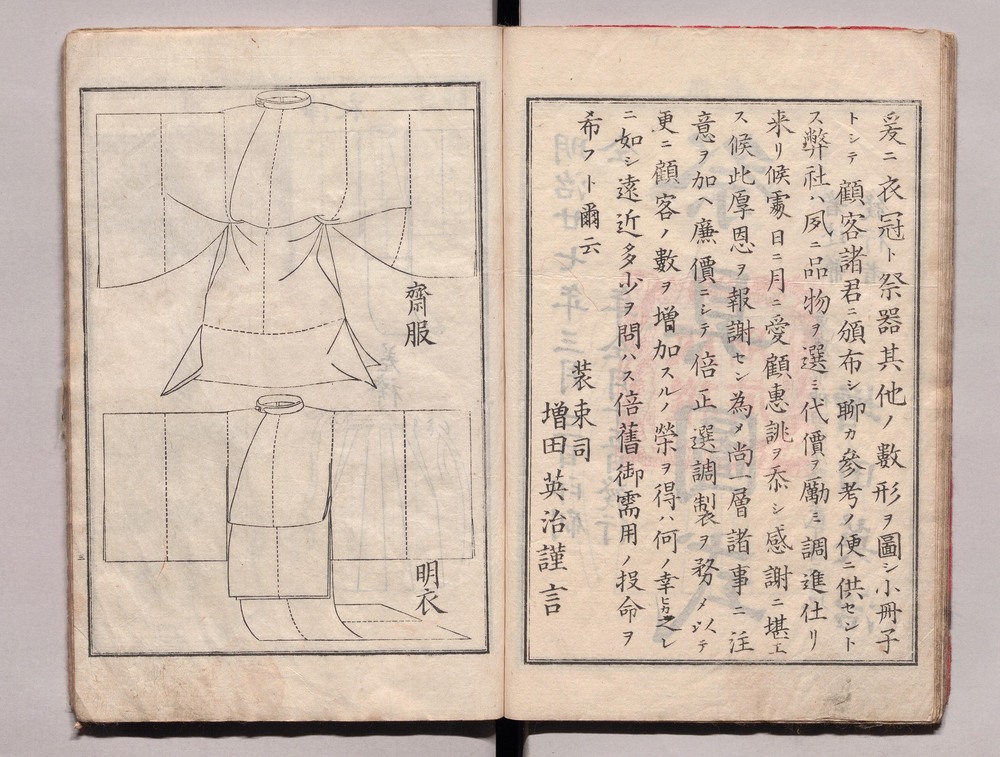 爰ニ衣冠ト祭器其他ノ數形ヲ圖シ小冊子
トシテ顧客諸君ニ頒布シ聊カ參考ノ便ニ供セント
ス弊社ハ夙ニ品物ヲ選ミ代價ヲ勵ミ調進仕リ
来リ候處日ニ月ニ愛顧惠誂ヲ忝シ感謝ニ堪エ
ス候此厚恩ヲ報謝セン為メ尚一層諸事ニ注
意ヲ加ヘ廉價ニシテ倍正選調製ヲ務メ以テ
更ニ顧客ノ數ヲ增加スルノ榮ヲ得ハ何ノ幸ヒカ之レ
ニ如シ遠近多少ヲ問ハス倍舊御需用ノ投命ヲ
希フト爾云
装束司
増田英治謹言
齋服
明衣
三